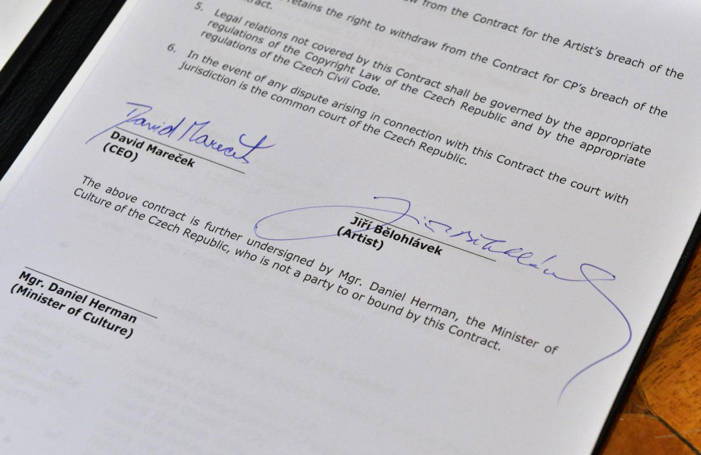 w from the Contract for the Artist's breach of the
tract.
retains the right to withdraw from the Contract for CP's breach of the
5. Legal relations not covered by this Contract shall be governed by the appropriate
regulations of the Copyright Law of the Czech Republic and by the appropriate
regulations of the Czech Civil Code.
6. In the event of any dispute arising in connection with this Contract the court with
jurisdiction is the common court of the Czech Republic.
David Mareček
David Mareček
(CEO)
Jiří Bělohlávek
Jiří Bělohlávek
(Artist)
The above contract is further undersigned by Mgr. Daniel Herman, the Minister of
Culture of the Czech Republic, who is not a party to or bound by this Contract.
Mgr. Daniel Herman
(Minister of Culture)